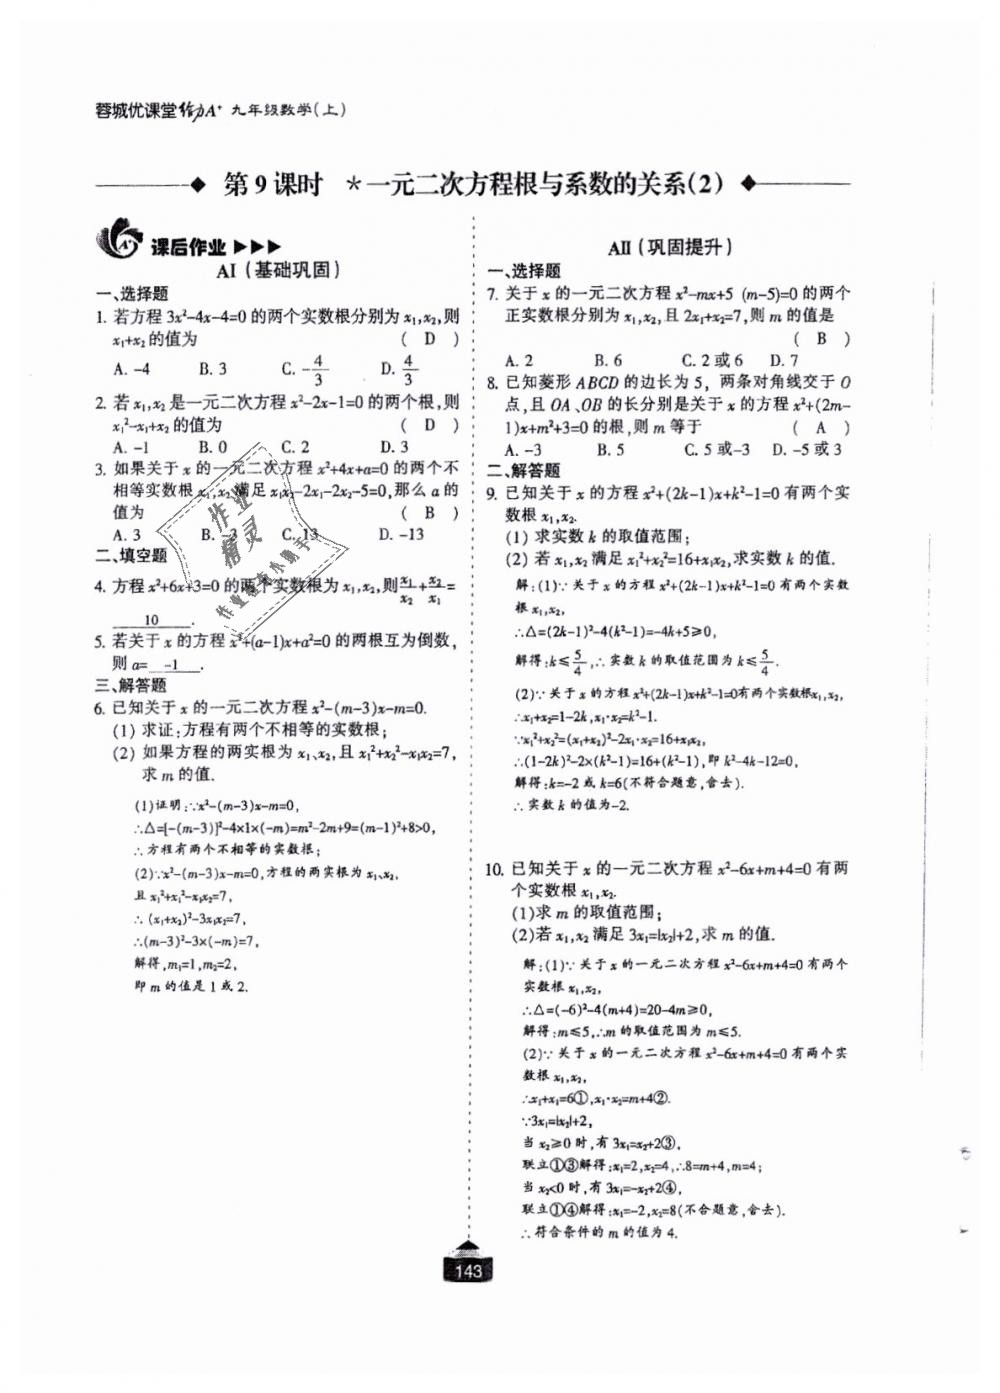 蓉城优课堂给力A⁺ 九年级数学(上)
第9课时 *一元二次方程根与系数的关系(2)
课后作业
AⅠ(基础巩固)
一、选择题
1. 若方程 3x²-4x-4=0 的两个实数根分别为 x₁,x₂,则
x₁+x₂ 的值为 ( D )
A. -4 B. 3 C. -4/3 D. 4/3
2. 若 x₁,x₂ 是一元二次方程 x²-2x-1=0 的两个根,则
x₁²-x₁+x₂ 的值为 ( D )
A. -1 B. 0 C. 2 D. 3
3. 如果关于 x 的一元二次方程 x²+4x+a=0 的两个不
相等实数根 x₁,x₂ 满足 x₁x₂-2x₁-2x₂-5=0,那么 a 的
值为 ( B )
A. 3 B. -3 C. 13 D. -13
二、填空题
4. 方程 x²+6x+3=0 的两个实数根为 x₁,x₂,则 x₁/x₂ + x₂/x₁ =
10 .
5. 若关于 x 的方程 x²+(a-1)x+a²=0 的两根互为倒数,
则 a= -1 .
三、解答题
6. 已知关于 x 的一元二次方程 x²-(m-3)x-m=0.
(1) 求证:方程有两个不相等的实数根;
(2) 如果方程的两实根为 x₁、x₂,且 x₁²+x₂²-x₁x₂=7,
求 m 的值.
(1)证明:∵x²-(m-3)x-m=0,
∴△=[-(m-3)]²-4×1×(-m)=m²-2m+9=(m-1)²+8>0,
∴方程有两个不相等的实数根;
(2)∵x²-(m-3)x-m=0,方程的两实根为 x₁、x₂,
且 x₁²+x₁²-x₁x₂=7,
∴(x₁+x₂)²-3x₁x₂=7,
∴(m-3)²-3×(-m)=7,
解得,m₁=1,m₂=2,
即 m 的值是 1 或 2.
AⅡ(巩固提升)
一、选择题
7. 关于 x 的一元二次方程 x²-mx+5 (m-5)=0 的两个
正实数根分别为 x₁,x₂,且 2x₁+x₂=7,则 m 的值是
( B )
A. 2 B. 6 C. 2 或 6 D. 7
8. 已知菱形 ABCD 的边长为 5, 两条对角线交于 O
点,且 OA、OB 的长分别是关于 x 的方程 x²+(2m-
1)x+m²+3=0 的根,则 m 等于 ( A )
A. -3 B. 5 C. 5 或-3 D. -5 或 3
二、解答题
9. 已知关于 x 的方程 x²+(2k-1)x+k²-1=0 有两个实
数根 x₁,x₂.
(1) 求实数 k 的取值范围;
(2) 若 x₁,x₂ 满足 x₁²+x₂²=16+x₁x₂,求实数 k 的值.
解:(1)∵关于 x 的方程 x²+(2k-1)x+k²-1=0 有两个实数
根 x₁,x₂,
∴△=(2k-1)²-4(k²-1)=-4k+5≥0,
解得:k≤5/4,∴实数 k 的取值范围为 k≤5/4.
(2)∵关于 x 的方程 x²+(2k-1)x+k²-1=0有两个实数根x₁,x₂,
∴x₁+x₂=1-2k,x₁·x₂=k²-1.
∵x₁²+x₂²=(x₁+x₂)²-2x₁·x₂=16+x₁x₂,
∴(1-2k)²-2×(k²-1)=16+(k²-1),即 k²-4k-12=0,
解得:k=-2 或 k=6(不符合题意,舍去).
∴实数 k 的值为-2.
10. 已知关于 x 的一元二次方程 x²-6x+m+4=0 有两
个实数根 x₁,x₂.
(1)求 m 的取值范围;
(2)若 x₁,x₂ 满足 3x₁=|x₂|+2,求 m 的值.
解:(1)∵关于 x 的一元二次方程 x²-6x+m+4=0 有两个
实数根 x₁,x₂,
∴△=(-6)²-4(m+4)=20-4m≥0,
解得:m≤5,∴m 的取值范围为 m≤5.
(2)∵关于 x 的一元二次方程 x²-6x+m+4=0 有两个实
数根 x₁,x₂,
∴x₁+x₁=6①,x₁·x₂=m+4②.
∵3x₁=|x₂|+2,
当 x₂≥0 时,有 3x₁=x₂+2③,
联立①③解得:x₁=2,x₂=4,∴8=m+4,m=4;
当 x₂<0 时,有 3x₁=-x₂+2④,
联立①④解得:x₁=-2,x₂=8(不合题意,舍去).
∴符合条件的 m 的值为 4.
143
作业精灵